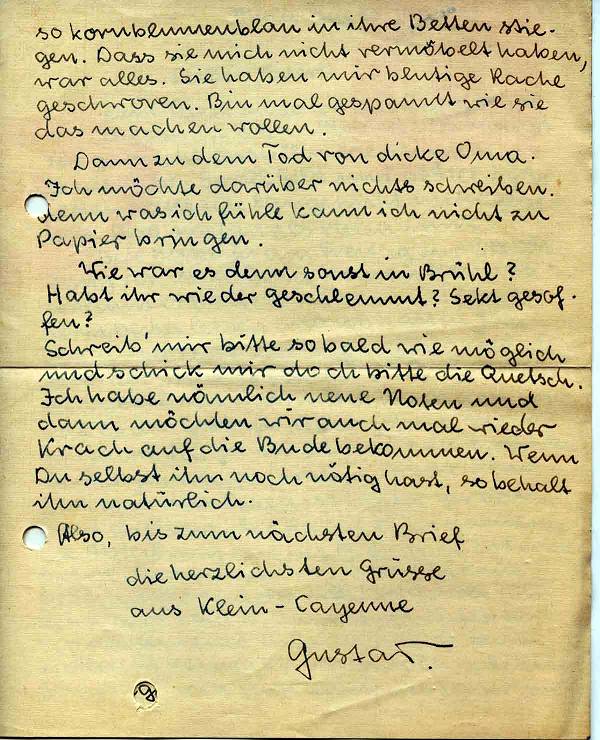 so kornblumenblau in ihre Betten stie-
gen. Dass sie mich nicht vermöbelt haben,
war alles. Sie haben mir blutige Rache
geschworen. Bin mal gespannt wie sie
das machen wollen.
Dann zu dem Tod von dicke Oma.
Ich möchte darüber nichts schreiben.
denn was ich fühle kann ich nicht zu
Papier bringen.
Wie war es denn sonst in Brühl?
Habt ihr wieder geschlemmt? Sekt gesof-
fen?
Schreib' mir bitte so bald wie möglich
und schick mir doch bitte die Quetsch.
Ich habe nämlich neue Noten und
dann möchten wir auch mal wieder
Krach auf die Bude bekommen. Wenn
Du selbst ihn noch nötig hast, so behalt
ihn natürlich.
Also, bis zum nächsten Brief
die herzlichsten Grüsse
aus Klein-Cayenne
Gustav.